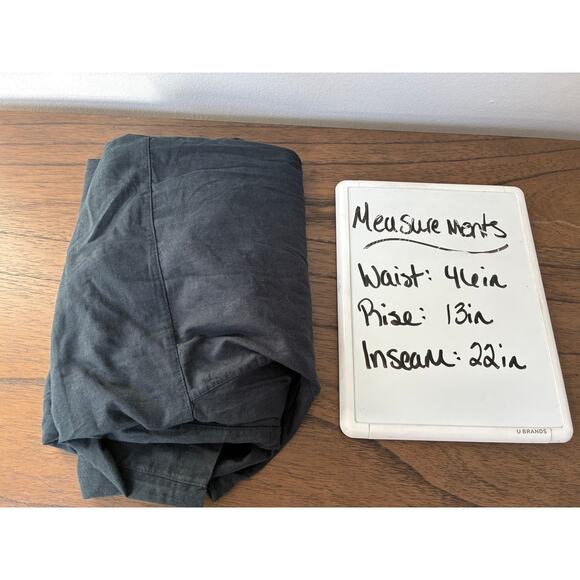 Measurements
Waist: 46in
Rise: 13in
Inseam: 22in
U BRANDS